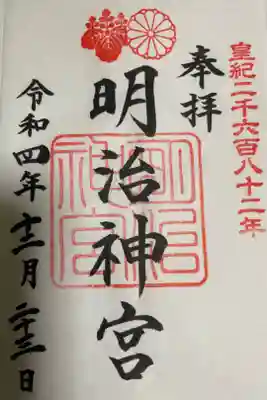 皇紀二千六百八十二年
奉拝
明治神宮
明治
神宮
令和四年十二月二十三日